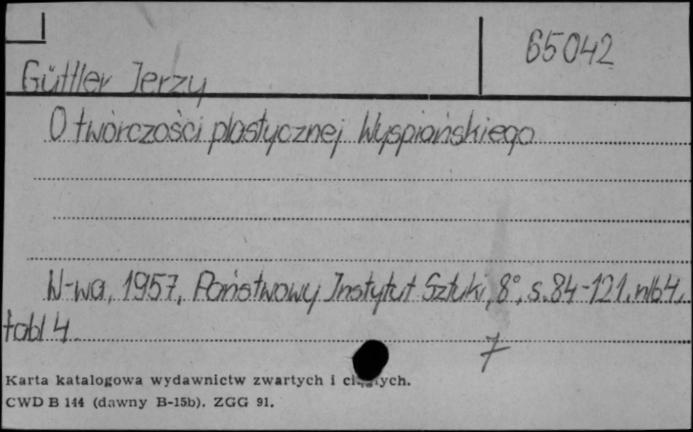 65042
Güttler Jerzy
O twórczości plastycznej Wyspiańskiego
W-wa, 1957, Państwowy Instytut Sztuki, 8°, s. 84-121. nlb 4.
tabl 4.
7
Karta katalogowa wydawnictw zwartych i ciągłych.
CWD B 144 (dawny B-15b). ZGG 91.